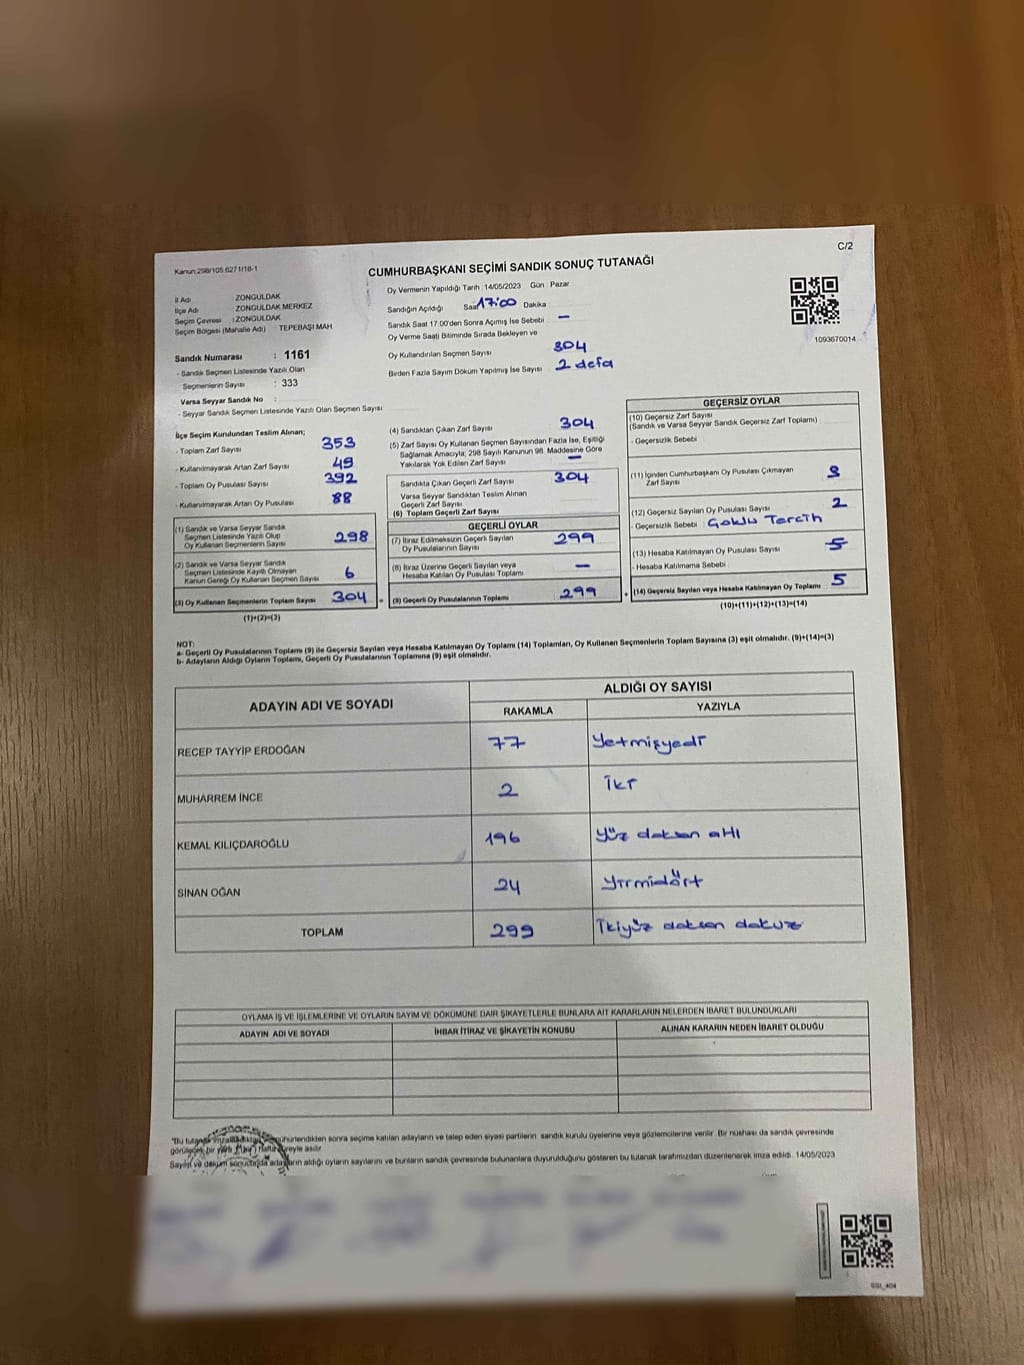 C/2
Kanun:298/105.6271/18-1
CUMHURBAŞKANI SEÇİMİ SANDIK SONUÇ TUTANAĞI
İl Adı : ZONGULDAK
İlçe Adı : ZONGULDAK MERKEZ
Seçim Çevresi : ZONGULDAK
Seçim Bölgesi (Mahalle Adı) : TEPEBAŞI MAH.
Sandık Numarası : 1161
- Sandık Seçmen Listesinde Yazılı Olan
Seçmenlerin Sayısı : 333
Varsa Seyyar Sandık No :
- Seyyar Sandık Seçmen Listesinde Yazılı Olan Seçmen Sayısı
Oy Vermenin Yapıldığı Tarih :14/05/2023 Gün : Pazar
Sandığın Açıldığı Saat 17:00 Dakika
Sandık Saat 17:00'den Sonra Açımış İse Sebebi —
Oy Verme Saati Bitiminde Sırada Bekleyen ve
Oy Kullandırılan Seçmen Sayısı 304
Birden Fazla Sayım Döküm Yapılmış İse Sayısı 2 defa
1093670014
İlçe Seçim Kurulundan Teslim Alınan;
- Toplam Zarf Sayısı 353
- Kullanılmayarak Artan Zarf Sayısı 49
- Toplam Oy Pusulası Sayısı 392
- Kullanılmayarak Artan Oy Pusulası 88
(1) Sandık ve Varsa Seyyar Sandık
Seçmen Listesinde Yazılı Olup
Oy Kullanan Seçmenlerin Sayısı 298
(2) Sandık ve Varsa Seyyar Sandık
Seçmen Listesinde Kayıtlı Olmayan
Kanun Gereği Oy Kullanan Seçmen Sayısı 6
(3) Oy Kullanan Seçmenlerin Toplam Sayısı 304 =
(1)+(2)=(3)
(4) Sandıktan Çıkan Zarf Sayısı 304
(5) Zarf Sayısı Oy Kullanan Seçmen Sayısından Fazla İse, Eşitliği
Sağlamak Amacıyla; 298 Sayılı Kanunun 98. Maddesine Göre
Yakılarak Yok Edilen Zarf Sayısı —
Sandıkta Çıkan Geçerli Zarf Sayısı 304
Varsa Seyyar Sandıktan Teslim Alınan
Geçerli Zarf Sayısı
(6) Toplam Geçerli Zarf Sayısı
GEÇERLİ OYLAR
(7) İtiraz Edilmeksizin Geçerli Sayılan
Oy Pusulalarının Sayısı 299
(8) İtiraz Üzerine Geçerli Sayılan veya
Hesaba Katılan Oy Pusulası Toplamı —
(9) Geçerli Oy Pusulalarının Toplamı 299 +
GEÇERSİZ OYLAR
(10) Geçersiz Zarf Sayısı
(Sandık ve Varsa Seyyar Sandık Geçersiz Zarf Toplamı)
- Geçersizlik Sebebi
(11) İçinden Cumhurbaşkanı Oy Pusulası Çıkmayan
Zarf Sayısı 3
(12) Geçersiz Sayılan Oy Pusulası Sayısı 2
- Geçersizlik Sebebi Çoklu Tercih
(13) Hesaba Katılmayan Oy Pusulası Sayısı 5
- Hesaba Katılmama Sebebi
(14) Geçersiz Sayılan veya Hesaba Katılmayan Oy Toplamı 5
(10)+(11)+(12)+(13)=(14)
NOT:
a- Geçerli Oy Pusulasının Toplamı (9) ile Geçersiz Sayılan veya Hesaba Katılmayan Oy Toplamı (14) Toplamları, Oy Kullanan Seçmenlerin Toplam Sayısına (3) eşit olmalıdır. (9)+(14)=(3)
b- Adayların Aldığı Oyların Toplamı, Geçerli Oy Pusulalarının Toplamına (9) eşit olmalıdır.
ADAYIN ADI VE SOYADI
ALDIĞI OY SAYISI
RAKAMLA YAZIYLA
RECEP TAYYİP ERDOĞAN 77 Yetmişyedi
MUHARREM İNCE 2 İki
KEMAL KILIÇDAROĞLU 196 Yüz doksan altı
SİNAN OĞAN 24 Yirmidört
TOPLAM 299 İkiyüz doksan dokuz
OYLAMA İŞ VE İŞLEMLERİNE VE OYLARIN SAYIM VE DÖKÜMÜNE DAİR ŞİKAYETLERLE BUNLARA AİT KARARLARIN NELERDEN İBARET BULUNDUKLARI
ADAYIN ADI VE SOYADI İHBAR İTİRAZ VE ŞİKAYETİN KONUSU ALINAN KARARIN NEDEN İBARET OLDUĞU
sonra seçime katılan adayların ve talep eden siyasi partilerin sandık kurulu üyelerine veya gözlemcilerine verilir. Bir nüshası da sandık çevresinde
Sayım ve döküm sonucunda adayların aldığı oyların sayılarını ve bunların sandık çevresinde bulunanlara duyurulduğunu gösteren bu tutanak tarafımızdan düzenlenerek imza edildi. 14/05/2023